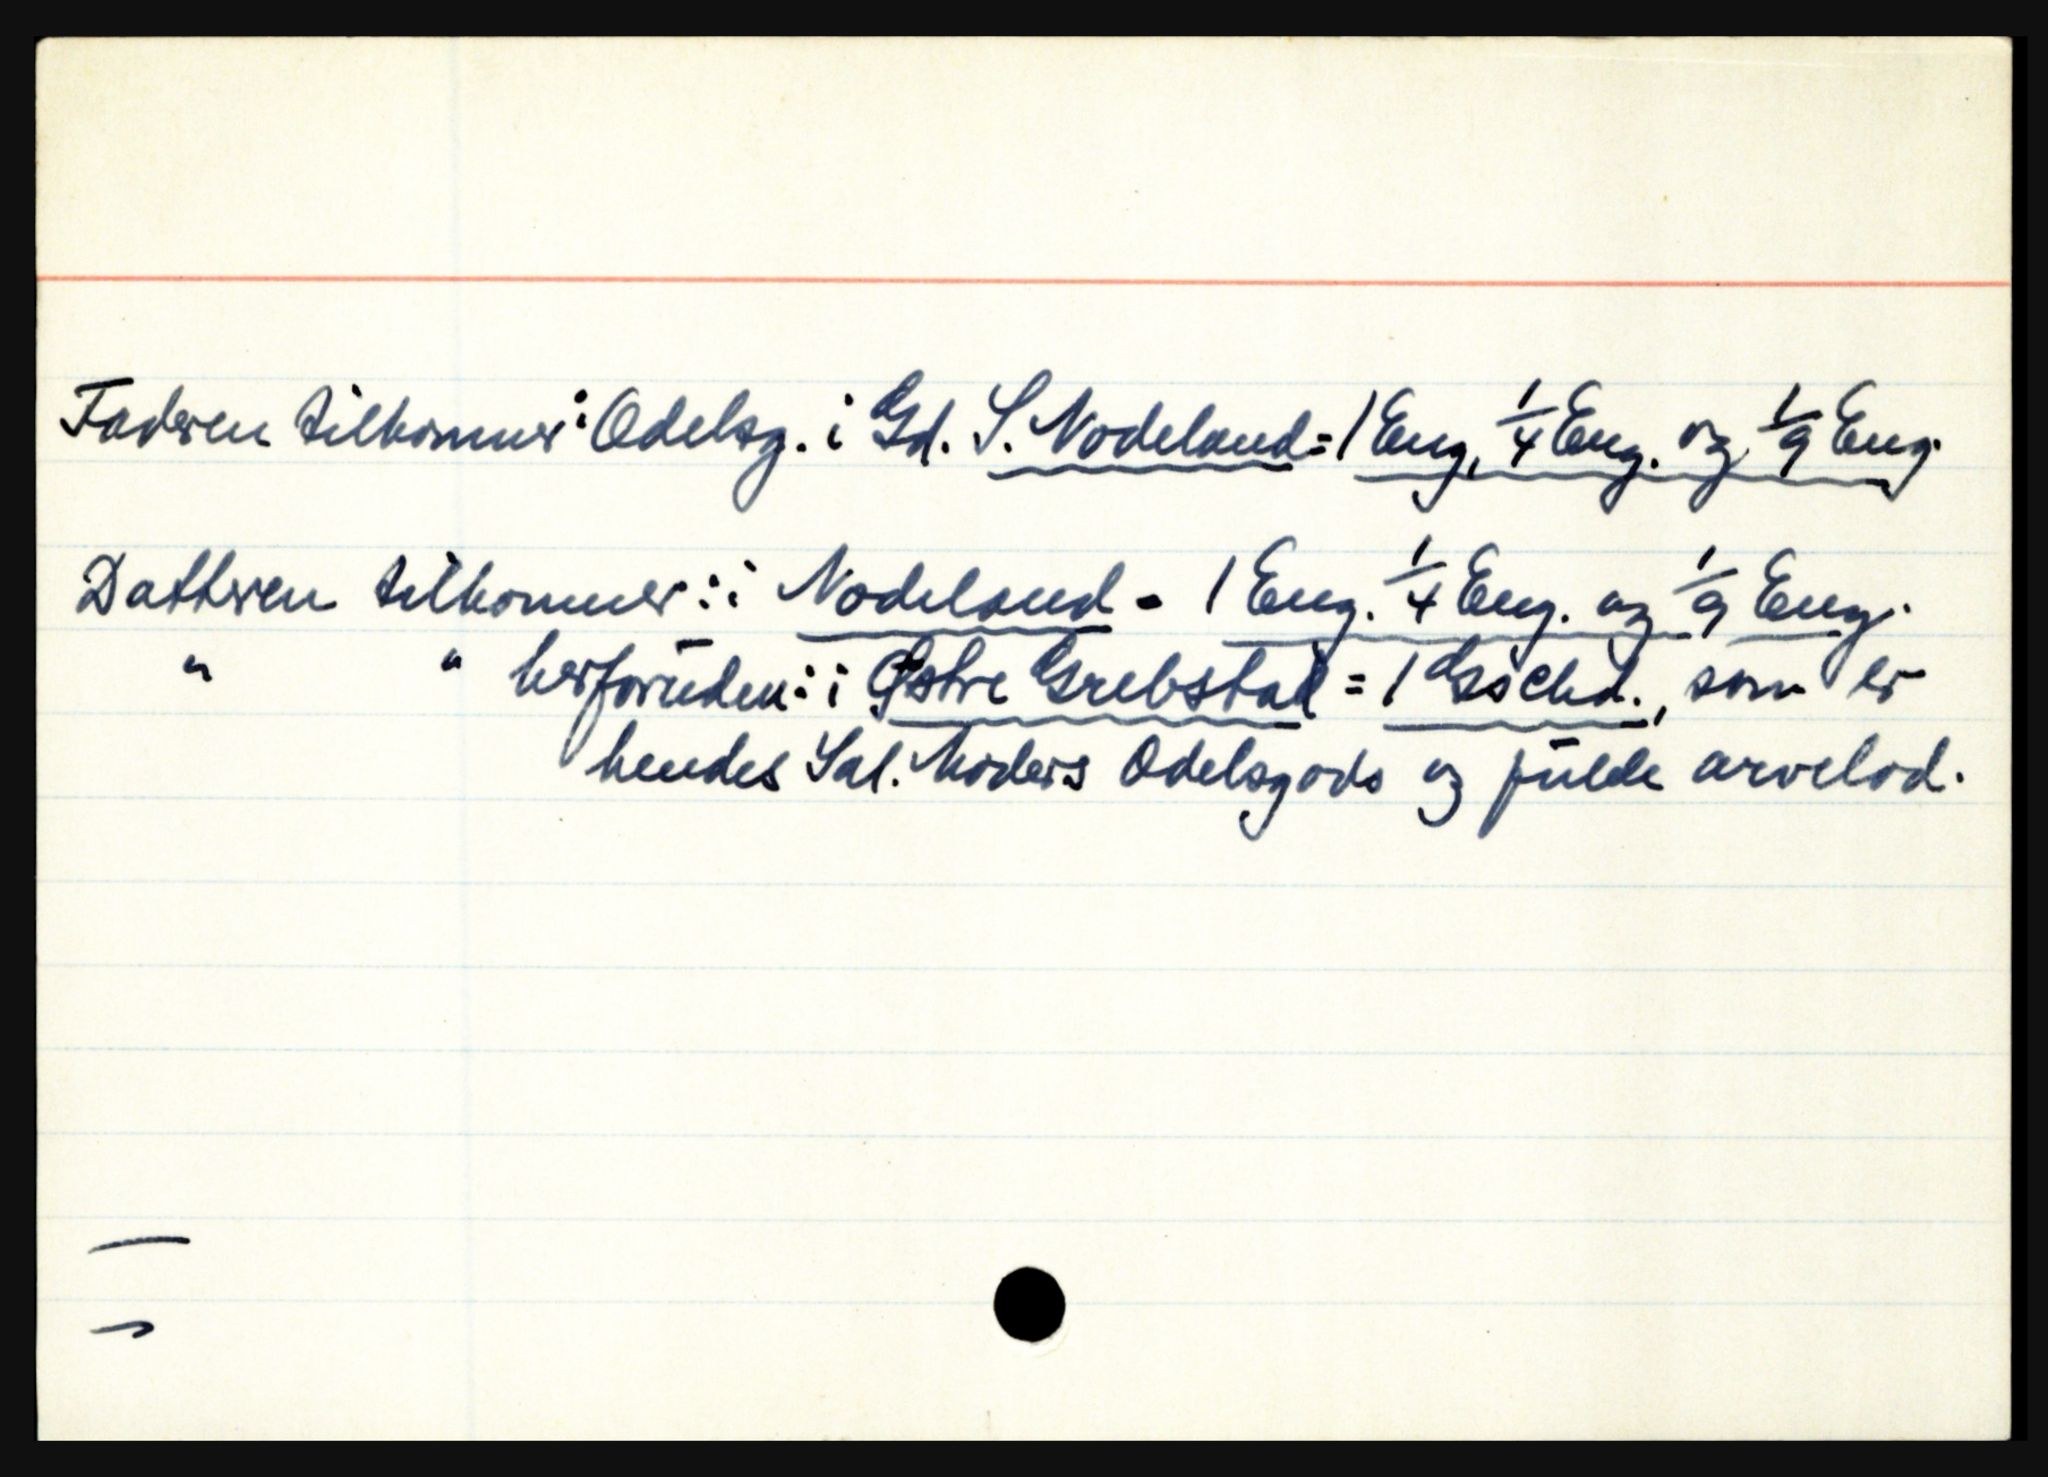 Faderen tilkommer: Odelsg. i Gd. S. Nodeland = 1 Eng, 1/4 Eng. og 1/9 Eng.
Datteren tilkommer: i Nodeland - 1 Eng. 1/4 Eng. og 1/9 Eng.
" " herforuden: i Østre Grebstad = 1 Gschd., som er
hendes Sal. Moders Odelsgods og fulde arvelod.